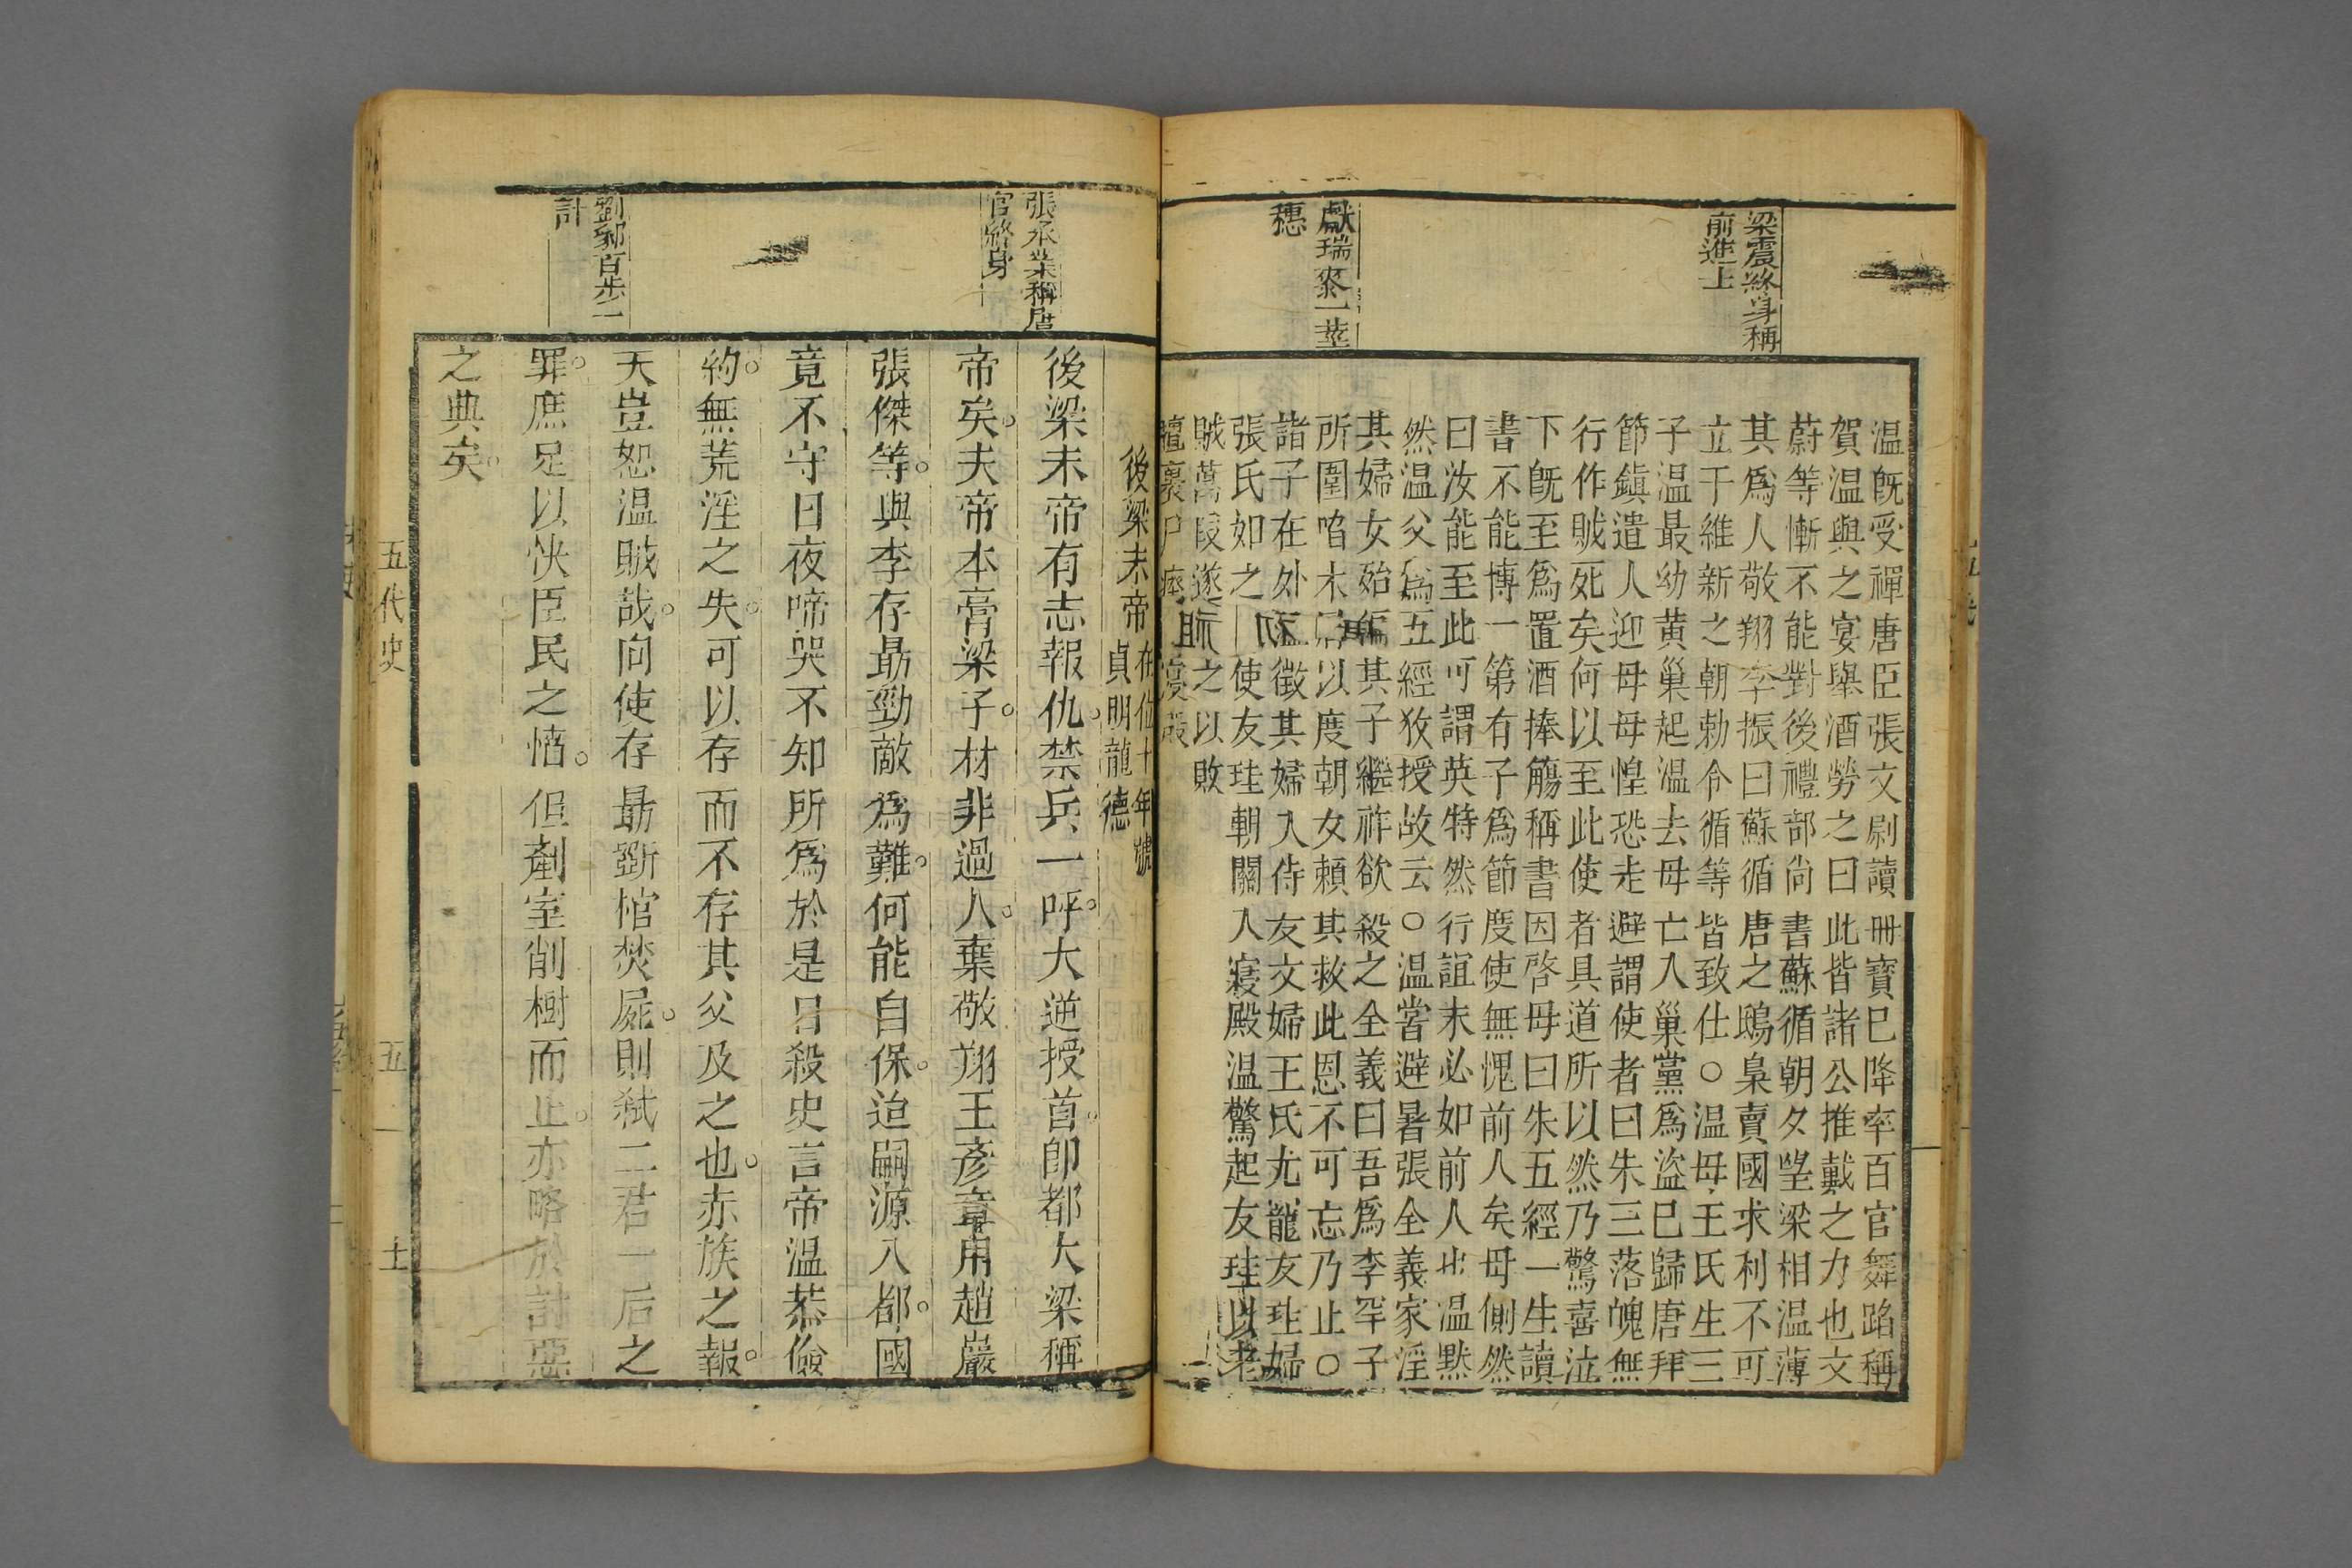 梁震終身稱
前進士
獻瑞麥一莖
穗
温旣受禪唐臣張文尉讀冊寶已降率百官舞蹈稱
賀温與之宴舉酒勞之曰此皆諸公推戴之力也文
蔚等慚不能對後禮部尚書蘇循朝夕望梁相温薄
其爲人敬翔李振曰蘇循唐之鴟梟賣國求利不可
立于維新之朝勅令循等皆致仕○温母王氏生三
子温最幼黃巢起温去母亡入巢黨爲盜已歸唐拜
節鎮遣人迎母母惶恐走避謂使者曰朱三落魄無
行作賊死矣何以至此使者具道所以然乃驚喜泣
下旣至爲置酒捧觴稱書因啓母曰朱五經一生讀
書不能博一第有子爲節度使無愧前人矣母惻然
曰汝能至此可謂英特然行誼未必如前人出温黙
然温父爲五經敎授故云○温嘗避暑張全義家淫
其婦女殆徧其子繼祚欲殺之全義曰吾爲李罕子
所圍啗木屑以度朝女頼其救此恩不可忘乃止○
諸子在外温徵其婦入侍友文婦王氏尤寵友珪婦
張氏如之使友珪朝關入寢殿温驚起友珪以老
賊萬段遂之以敗
氊裹尸瘞
張承業稱唐
官終身
劉鄩百步一
計
後梁末帝在位十年號
貞明龍德
後梁末帝有志報仇禁兵一呼大逆授首卽都大梁稱
帝矣夫帝本膏梁子材非過人棄敬翔王彥章用趙巖
張傑等與李存勗勁敵爲難何能自保迨嗣源入都國
竟不守日夜啼哭不知所爲於是日殺史言帝温恭儉
約無荒淫之失可以存而不存其父及之也赤族之報
天豈恕温賊哉向使存勗斲棺焚屍則弑二君一后之
罪庶足以快臣民之憤但剷室削樹而止亦略於討惡
之典矣
五代史
五